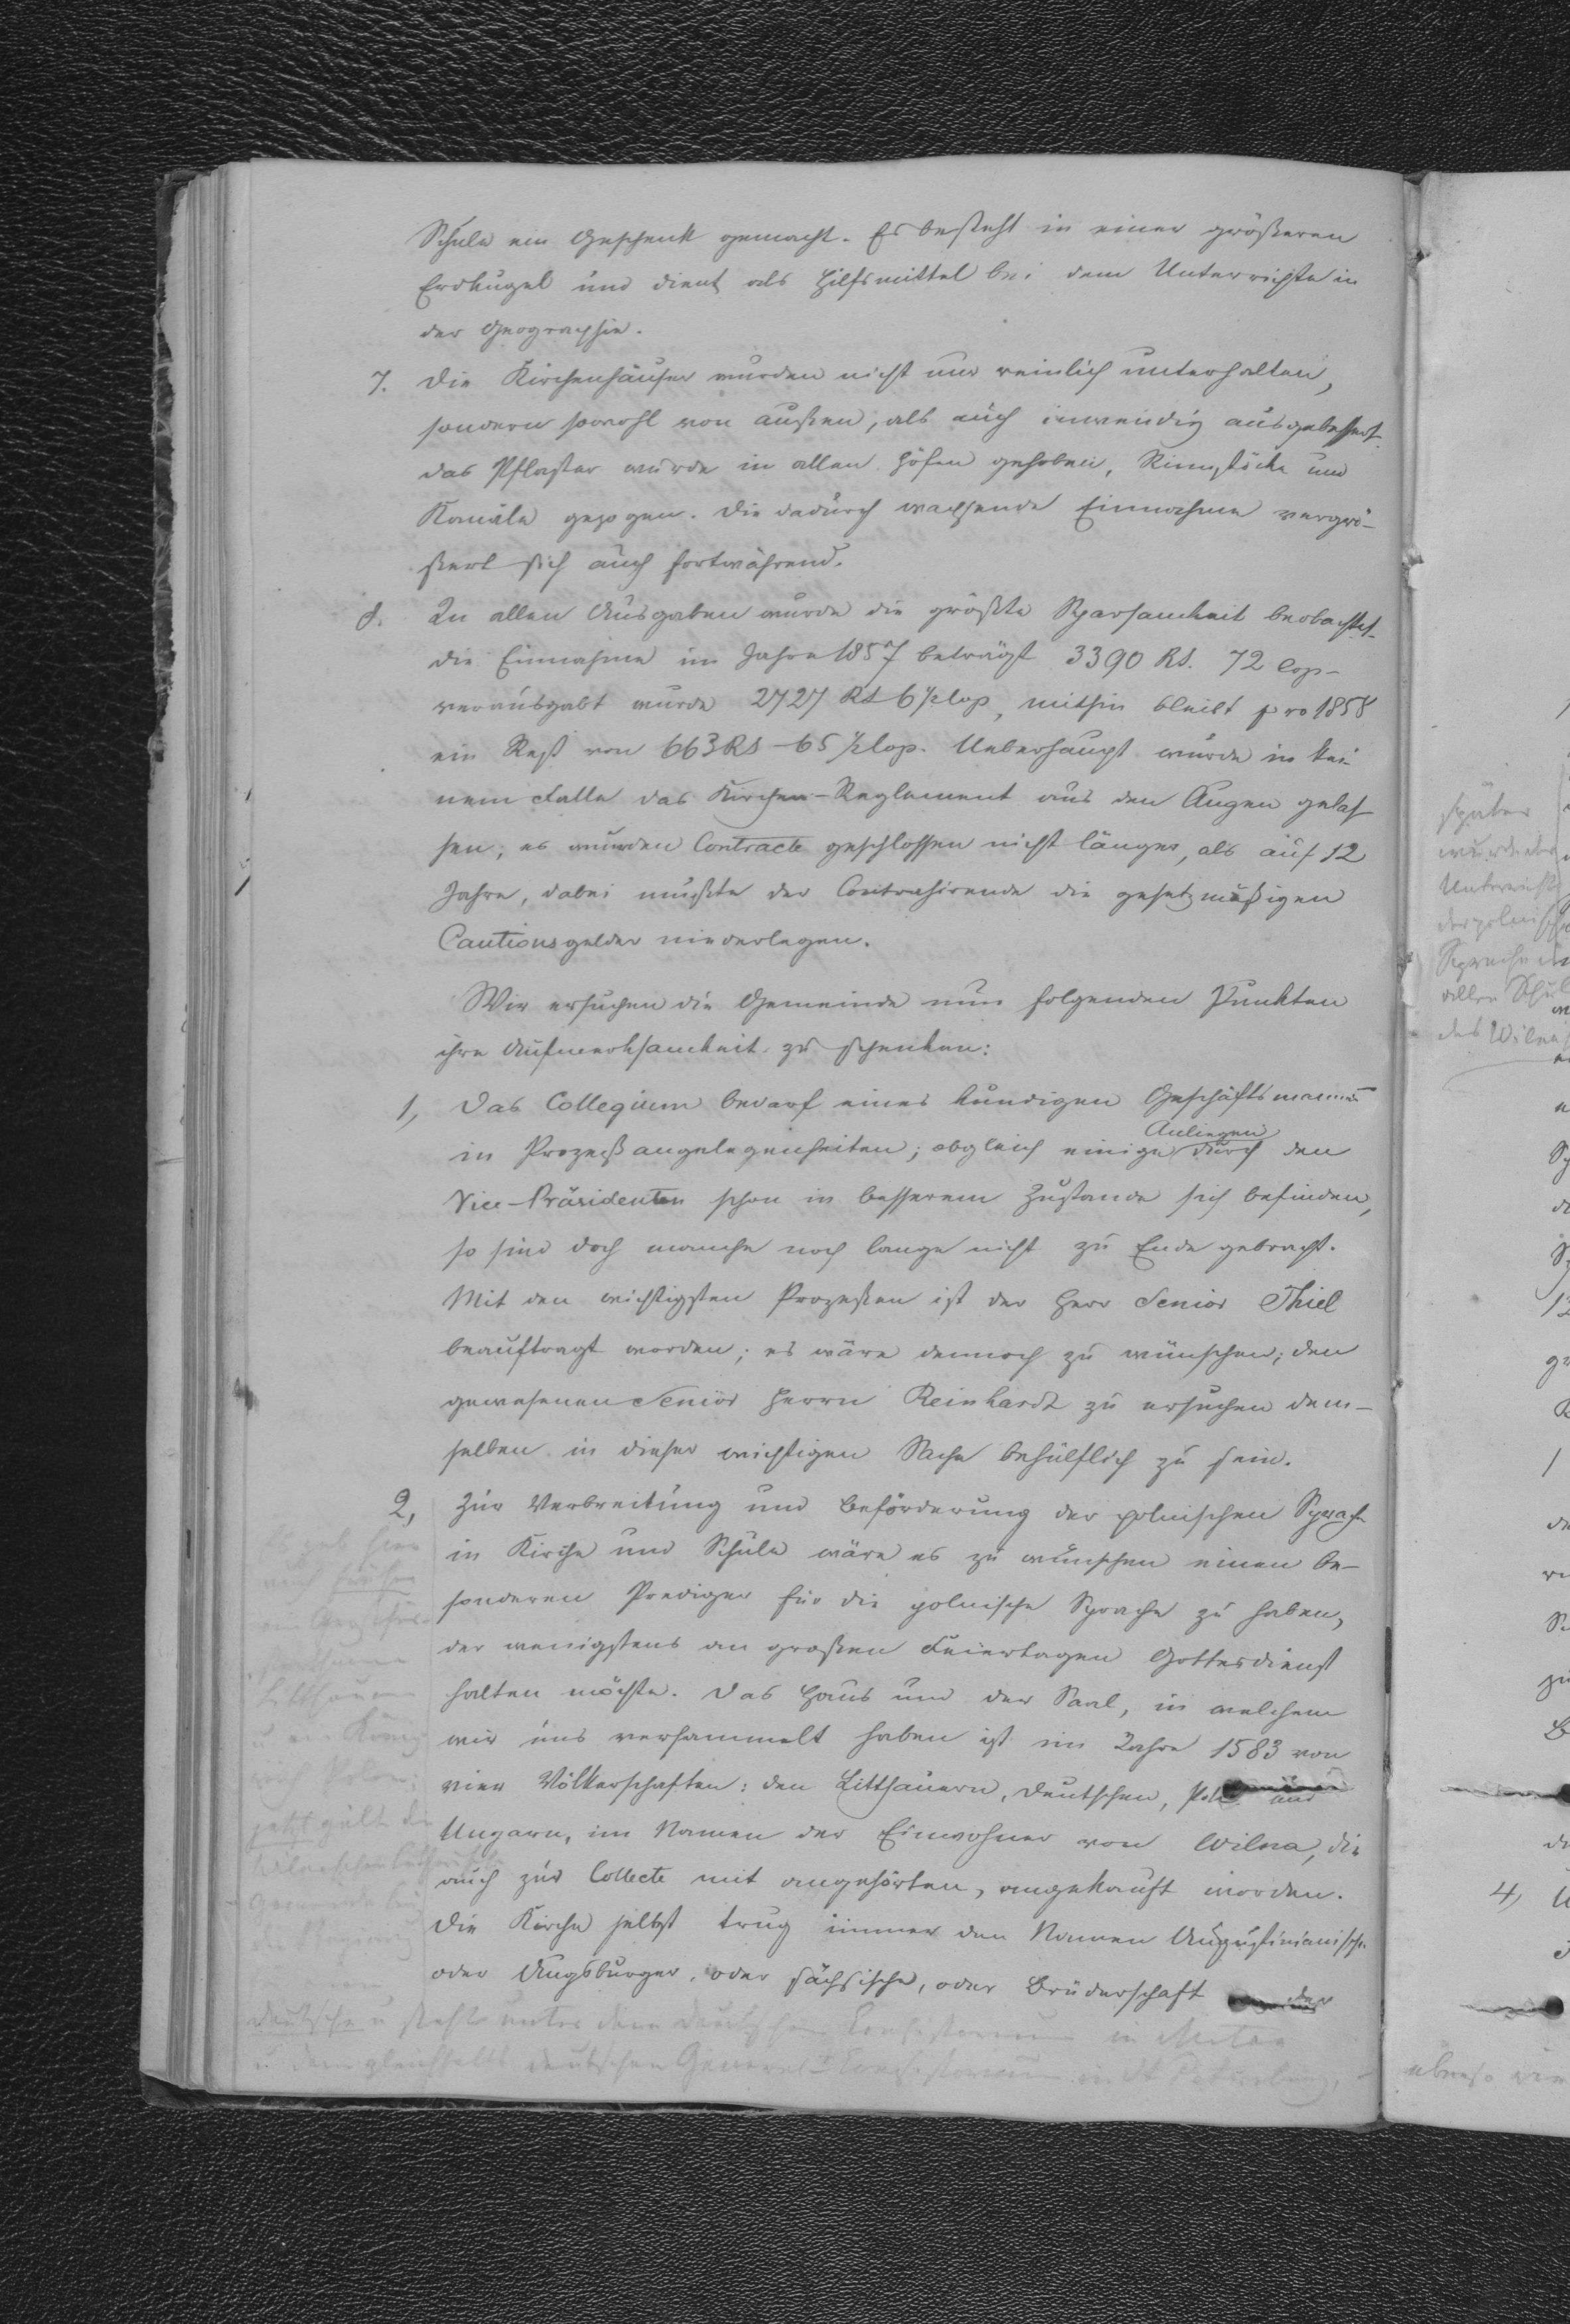 Schule ein Geschenk gemacht. Es besteht in einer größeren
Erdkugel und dient als Hilfsmittel bei dem Unterrichte in
der Geographie.
7. Die Kirchenhäuser wurden nicht nur reinlich unterhalten,
sondern sowohl von außen, als auch inwendig ausgebessert.
das Pflaster wurde in allen Höfen gehoben, und
Kanäle gezogen. Die dadurch wachsende Einnahme vergrö-
ßert sich auch fortwährend.
8. In allen Ausgaben wurde die größte Sparsamkeit beobachtet.
die Einnahme im Jahre 1857 beträgt 3390 RS. 72 Cop-
verausgabt wurde 2727 RS 6½ Cop, mithin bleibt pro 1858
ein Rest von 663 RS - 65½ Cop. Ueberhaupt wurde in kei-
nem Falle das Kirchen-Reglement aus den Augen gelas-
sen; es wurden Contracte geschlossen nicht länger, als auf 12
Jahre, dabei mußte der Contrahirende die gesetzmäßigen
Cautionsgelder niederlegen.
Wir ersuchen die Gemeinde nun folgenden Punkten
ihre Aufmerksamkeit zu schenken:
1, Das Collegium bedarf eines kundigen Geschäftsmannes
in Prozeßangelegenheiten; obgleich einige Anliegen durch den
Vice-Präsidenten schon in besserem Zustande sich befinden,
so sind doch manche noch lange nicht zu Ende gebracht.
Mit den wichtigsten Prozeßen ist der Herr Senior Thiel
beauftragt worden; es wäre dennoch zu wünschen; den
gewesenen Senior Herrn Reinhardt zu ersuchen dem-
selben in dieser wichtigen Sache behülflich zu sein.
2, Zur Verbreitung und Beförderung der polnischen Sprache
in Kirche und Schule wäre es zu wünschen einen be-
sonderen Prediger für die polnische Sprache zu haben,
der wenigstens an großen Feiertagen Gottesdienst
halten möchte. Das Haus und der Saal, in welchem
wir uns versammelt haben ist im Jahre 1583 von
vier Völkerschaften: den Litthauern, Deutschen, und
Ungarn, im Namen der Einwohner von Wilna, die
auch zur Collecte mit angehörten, angekauft worden.
Die Kirche selbst trug immer den Namen Augustinianische
oder Augsburger, oder sächsische, oder Brüderschaft der
Es gab hier
auch früher
ein Großfür-
stenthum
Litthauen
u ein König-
reich Polen;
jetzt gilt die
deutsche u steht unter dem deutschen Consistorium in Mitau
u dem gleichfalls deutschen General-Consistorium in St Petersburg,
später
wurde der
Unterricht
der polnisch
Sprache in
allen Schul
des Wilna
4,